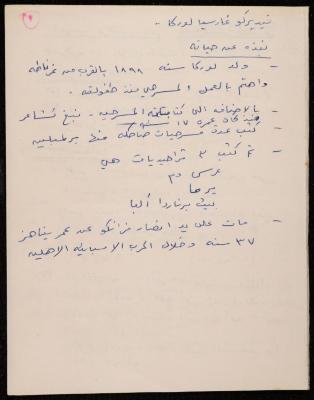 ٢
فيديريكو غارسيا لوركا -
نبذه عن حياته
- ولد لوركا سنه ١٨٩٨ بالقرب من غرناطه
واهتم بالعمل المسرحي منذ طفولته .
- بالاضافه الى كتاباته المسرحيه . نبغ كشاعر
منذ كان عمره ١٧ سنه
- كتب عدة مسرحيات ضاحكه منها برلمبلين
- ثم كتب ٣ تراجيديات هي
عرس دم
يرما
بيت برناردا ألبا
- مات على يد انصار فرانكو عن عمر يناهز
٣٧ سنه وخلال الحرب الاسبانيه الاهليه